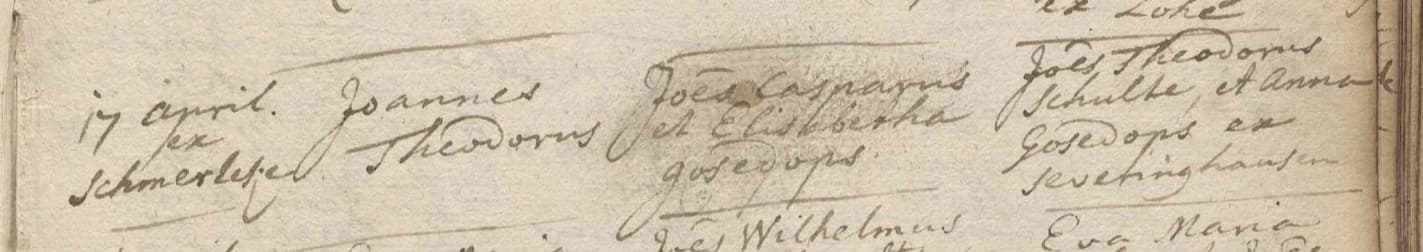 ex Lohe
17 april.
ex
Schmerleke
Joannes
Theodorus
Joēs Casparus
et Elisabetha
gosedops
Joēs Theodorus
Schulte, et Anna
Gosedops ex
severinghausen
Joēs Wilhelmus
Eva Maria